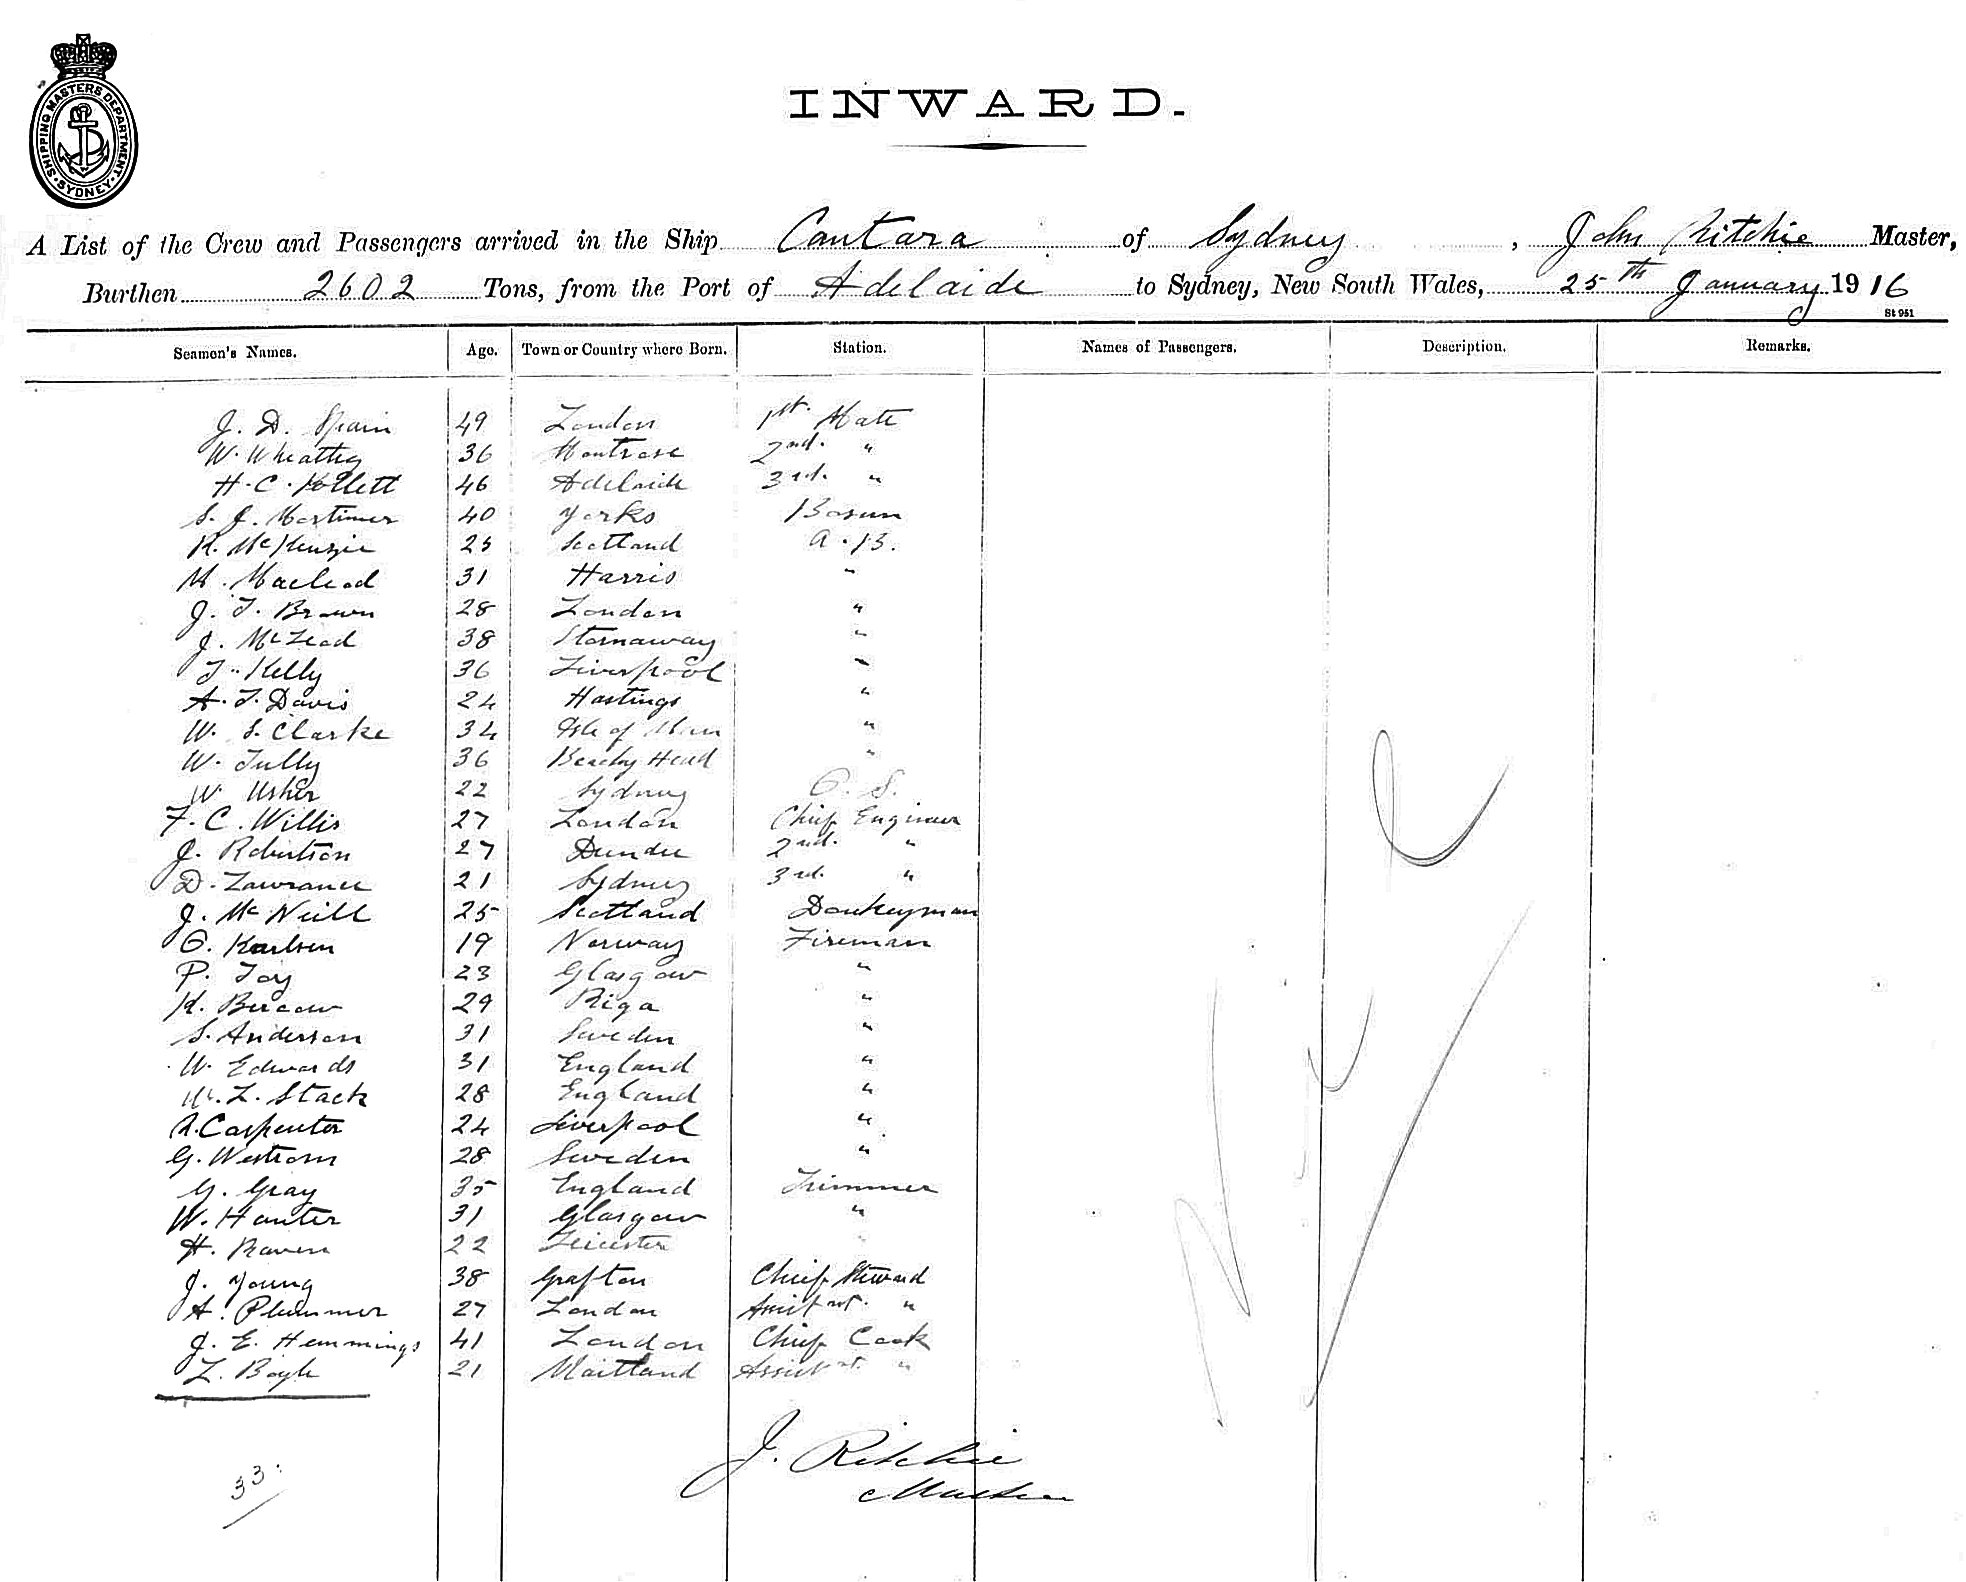 SHIPPING MASTERS DEPARTMENT. SYDNEY.
INWARD.
A List of the Crew and Passengers arrived in the Ship Cantara of Sydney, John Ritchie Master,
Burthen 2602 Tons, from the Port of Adelaide to Sydney, New South Wales, 25th January 1916
St 951
Seamen's Names. Age. Town or Country where Born. Station. Names of Passengers. Description. Remarks.
J. D. Spain 49 London 1st. Mate
W. Wheatley 36 Montrose 2nd. "
H. C. Kollett 46 Adelaide 3rd. "
S. J. Mortimer 40 Yorks Bosun
R. McKenzie 25 Scotland A.B.
M. Macleod 31 Harris "
J. T. Brown 28 London "
J. McLeod 38 Stornaway "
T. Kelly 36 Liverpool "
A. T. Davis 24 Hastings "
W. S. Clarke 34 Isle of Man "
W. Tully 36 Beachy Head "
W. Usher 22 Sydney O. S.
F. C. Willis 27 London Chief Engineer
J. Robertson 27 Dundee 2nd. "
D. Lawrance 21 Sydney 3rd. "
J. McNeill 25 Scotland Donkeyman
O. Karlsen 19 Norway Fireman
P. Toy 23 Glasgow "
K. 29 Riga "
S. Anderson 31 Sweden "
W. Edwards 31 England "
W. L. Stack 28 England "
R. Carpenter 24 Liverpool "
G. Westrom 28 Sweden "
G. Gray 35 England Trimmer
W. Hunter 31 Glasgow "
H. Raven 22 Leicester "
J. Young 38 Grafton Chief Steward
A. Plummer 27 London Assistant. "
J. E. Hemmings 41 London Chief Cook
L. Boyle 21 Maitland Assistant. "
J. Ritchie
Master
33